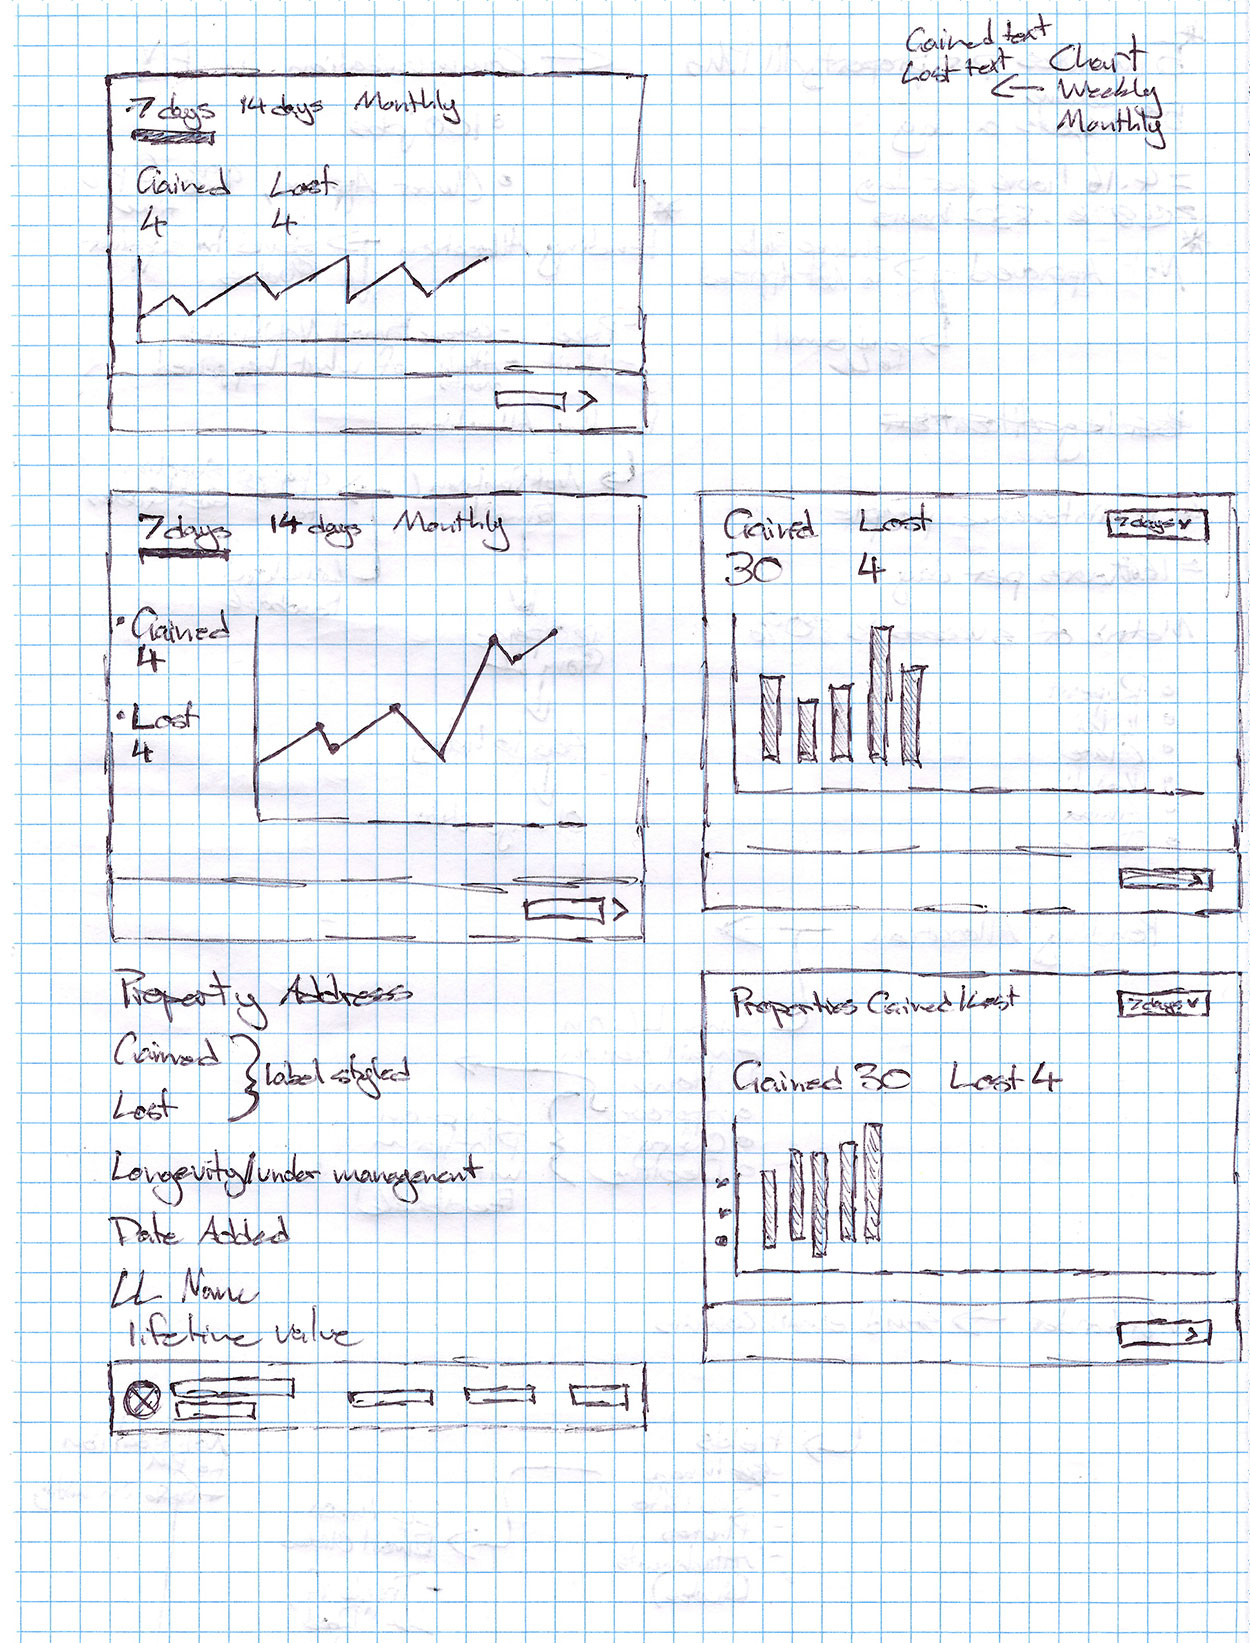 Gained text
Lost text
Chart
← Weekly
Monthly
7 days 14 days Monthly
Gained Lost
4 4
>
7 days 14 days Monthly
• Gained
4
• Lost
4
>
Gained Lost 7 days v
30 4
>
Property Address
Gained
Lost
} label styled
Longevity/under management
Date Added
LL Name
lifetime value
Properties Gained/Lost 7 days v
Gained 30 Lost 4
>